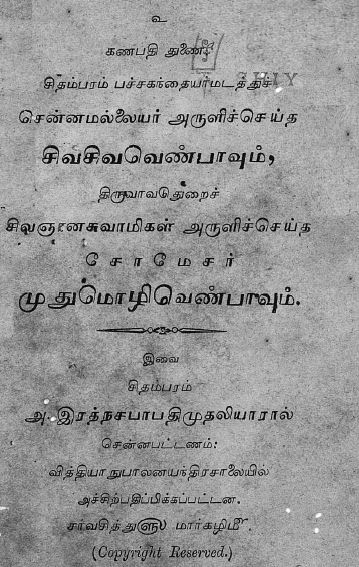 உ
கணபதி துணை.
சிதம்பரம் பச்சகந்தையர்மடத்துச்
சென்னமல்லையர் அருளிச்செய்த
சிவசிவவெண்பாவும்,
திருவாவடுதுறைச்
சிவஞானசுவாமிகள் அருளிச்செய்த
சோமேசர்
முதுமொழிவெண்பாவும்.
இவை
சிதம்பரம்
அ. இரத்நசபாபதிமுதலியாரால்
சென்னபட்டணம்:
வித்தியாநுபாலனயந்திரசாலையில்
அச்சிற்பதிப்பிக்கப்பட்டன.
சர்வசித்து௵ மார்கழி௴.
(Copyright Reserved.)